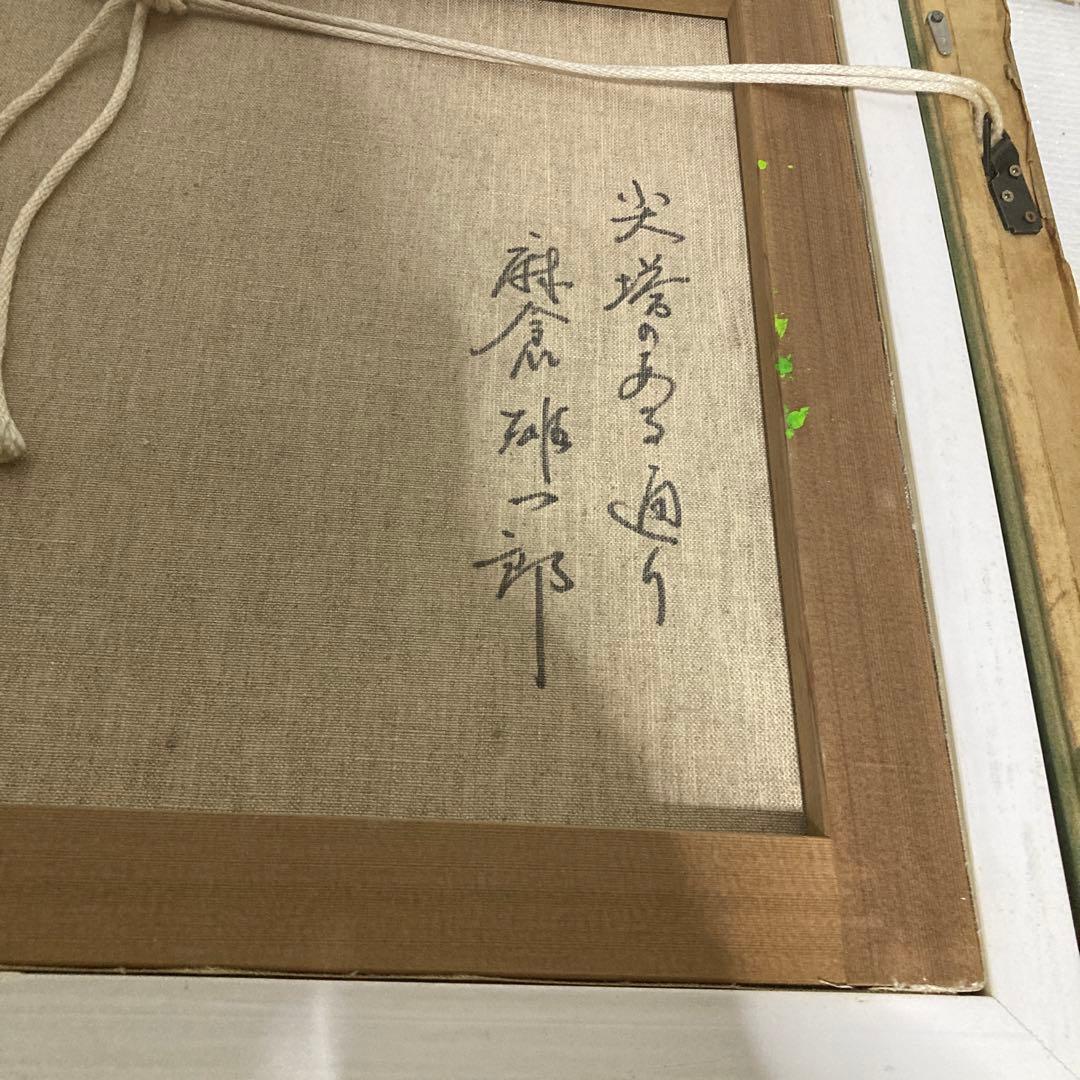 尖塔のある通り
麻倉雄一郎